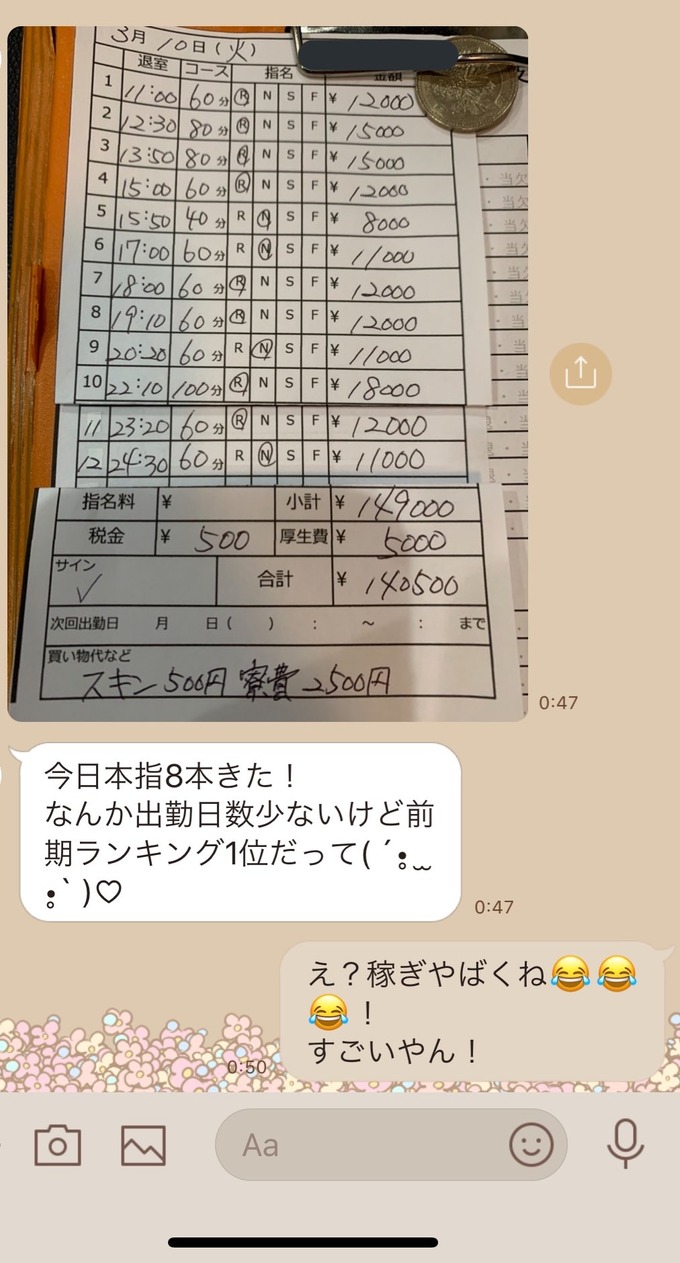 3月 10日(火)
退室 コース 指名 金額
1 11:00 60分 R N S F ¥ 12000
2 12:30 80分 R N S F ¥ 15000
3 13:50 80分 R N S F ¥ 15000
4 15:00 60分 R N S F ¥ 12000
5 15:50 40分 R N S F ¥ 8000
6 17:00 60分 R N S F ¥ 11000
7 18:00 60分 R N S F ¥ 12000
8 19:10 60分 R N S F ¥ 12000
9 20:20 60分 R N S F ¥ 11000
10 22:10 100分 R N S F ¥ 18000
11 23:20 60分 R N S F ¥ 12000
12 24:30 60分 R N S F ¥ 11000
指名料 ¥ 小計 ¥ 149000
税金 ¥ 500 厚生費 ¥ 5000
サイン ✓ 合計 ¥ 140500
次回出勤日 月 日( ) : ~ : まで
買い物代など
スキン500円 寮費2500円
・当欠
・当欠
・当欠
・当欠
0:47
今日本指8本きた!
なんか出勤日数少ないけど前
期ランキング1位だって( ´•̥ ̫
•̥` )♡
0:47
え?稼ぎやばくね😂😂
😂!
すごいやん!
0:50
Aa